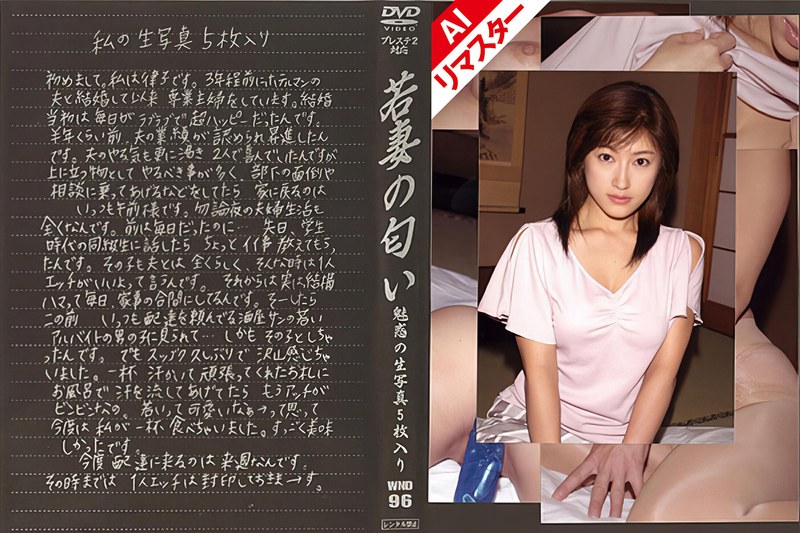 私の生写真5枚入り
初めまして。私は律子です。3年程前にホテルマンの
夫と結婚して以来 専業主婦をしています。結婚
当初は毎日がラブラブで超ハッピーだったんです。
半年くらい前、夫の業績が認められ昇進したん
です。夫のやる気も更に湧き 2人で喜んでいたんですが
上に立つ物として やるべき事が多く、部下の面倒や
相談に乗ってあげるなどをしてたら 家に戻るのは
いつも午前様です。勿論夜の夫婦生活も
全くなんです。前は毎日だったのに… 先日、学生
時代の同級生に話したら ちょっとイイ事教えてもらっ
たんです。その子も夫とは全くらしく、そんな時は1人
エッチがいいよって言うんです。それからは実は結構
ハマって毎日、家事の合間にしてるんです。そーしたら
この前 いつも配達を頼んでる酒屋サンの若い
アルバイトの男の子に見られて… しかもその子としちゃ
ったんです。でもスッゴク久しぶりで 沢山感じちゃ
いました。一杯 汗かいて頑張ってくれたお礼に
お風呂で 汗を流してあげてたら もうアッチが
ビンビンなの。若いって可愛いなぁーって思って
今度は私が一杯食べちゃいました。すっごく美味
しかったです。
今度 配達に来るのは来週なんです。
その時までは 1人エッチは封印しておきまーす。
DVD
VIDEO
プレステ2
対応
若妻の匂い
魅惑の生写真5枚入り
WND
96
レンタル禁止
AI
リマスター